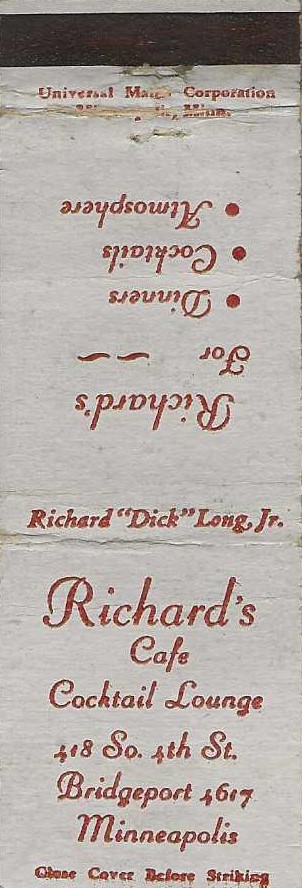 Universal Match Corporation
Minneapolis, Minn.
Richard's
For
• Dinners
• Cocktails
• Atmosphere
Richard "Dick" Long, Jr.
Richard's
Cafe
Cocktail Lounge
418 So. 4th St.
Bridgeport 4617
Minneapolis
Close Cover Before Striking